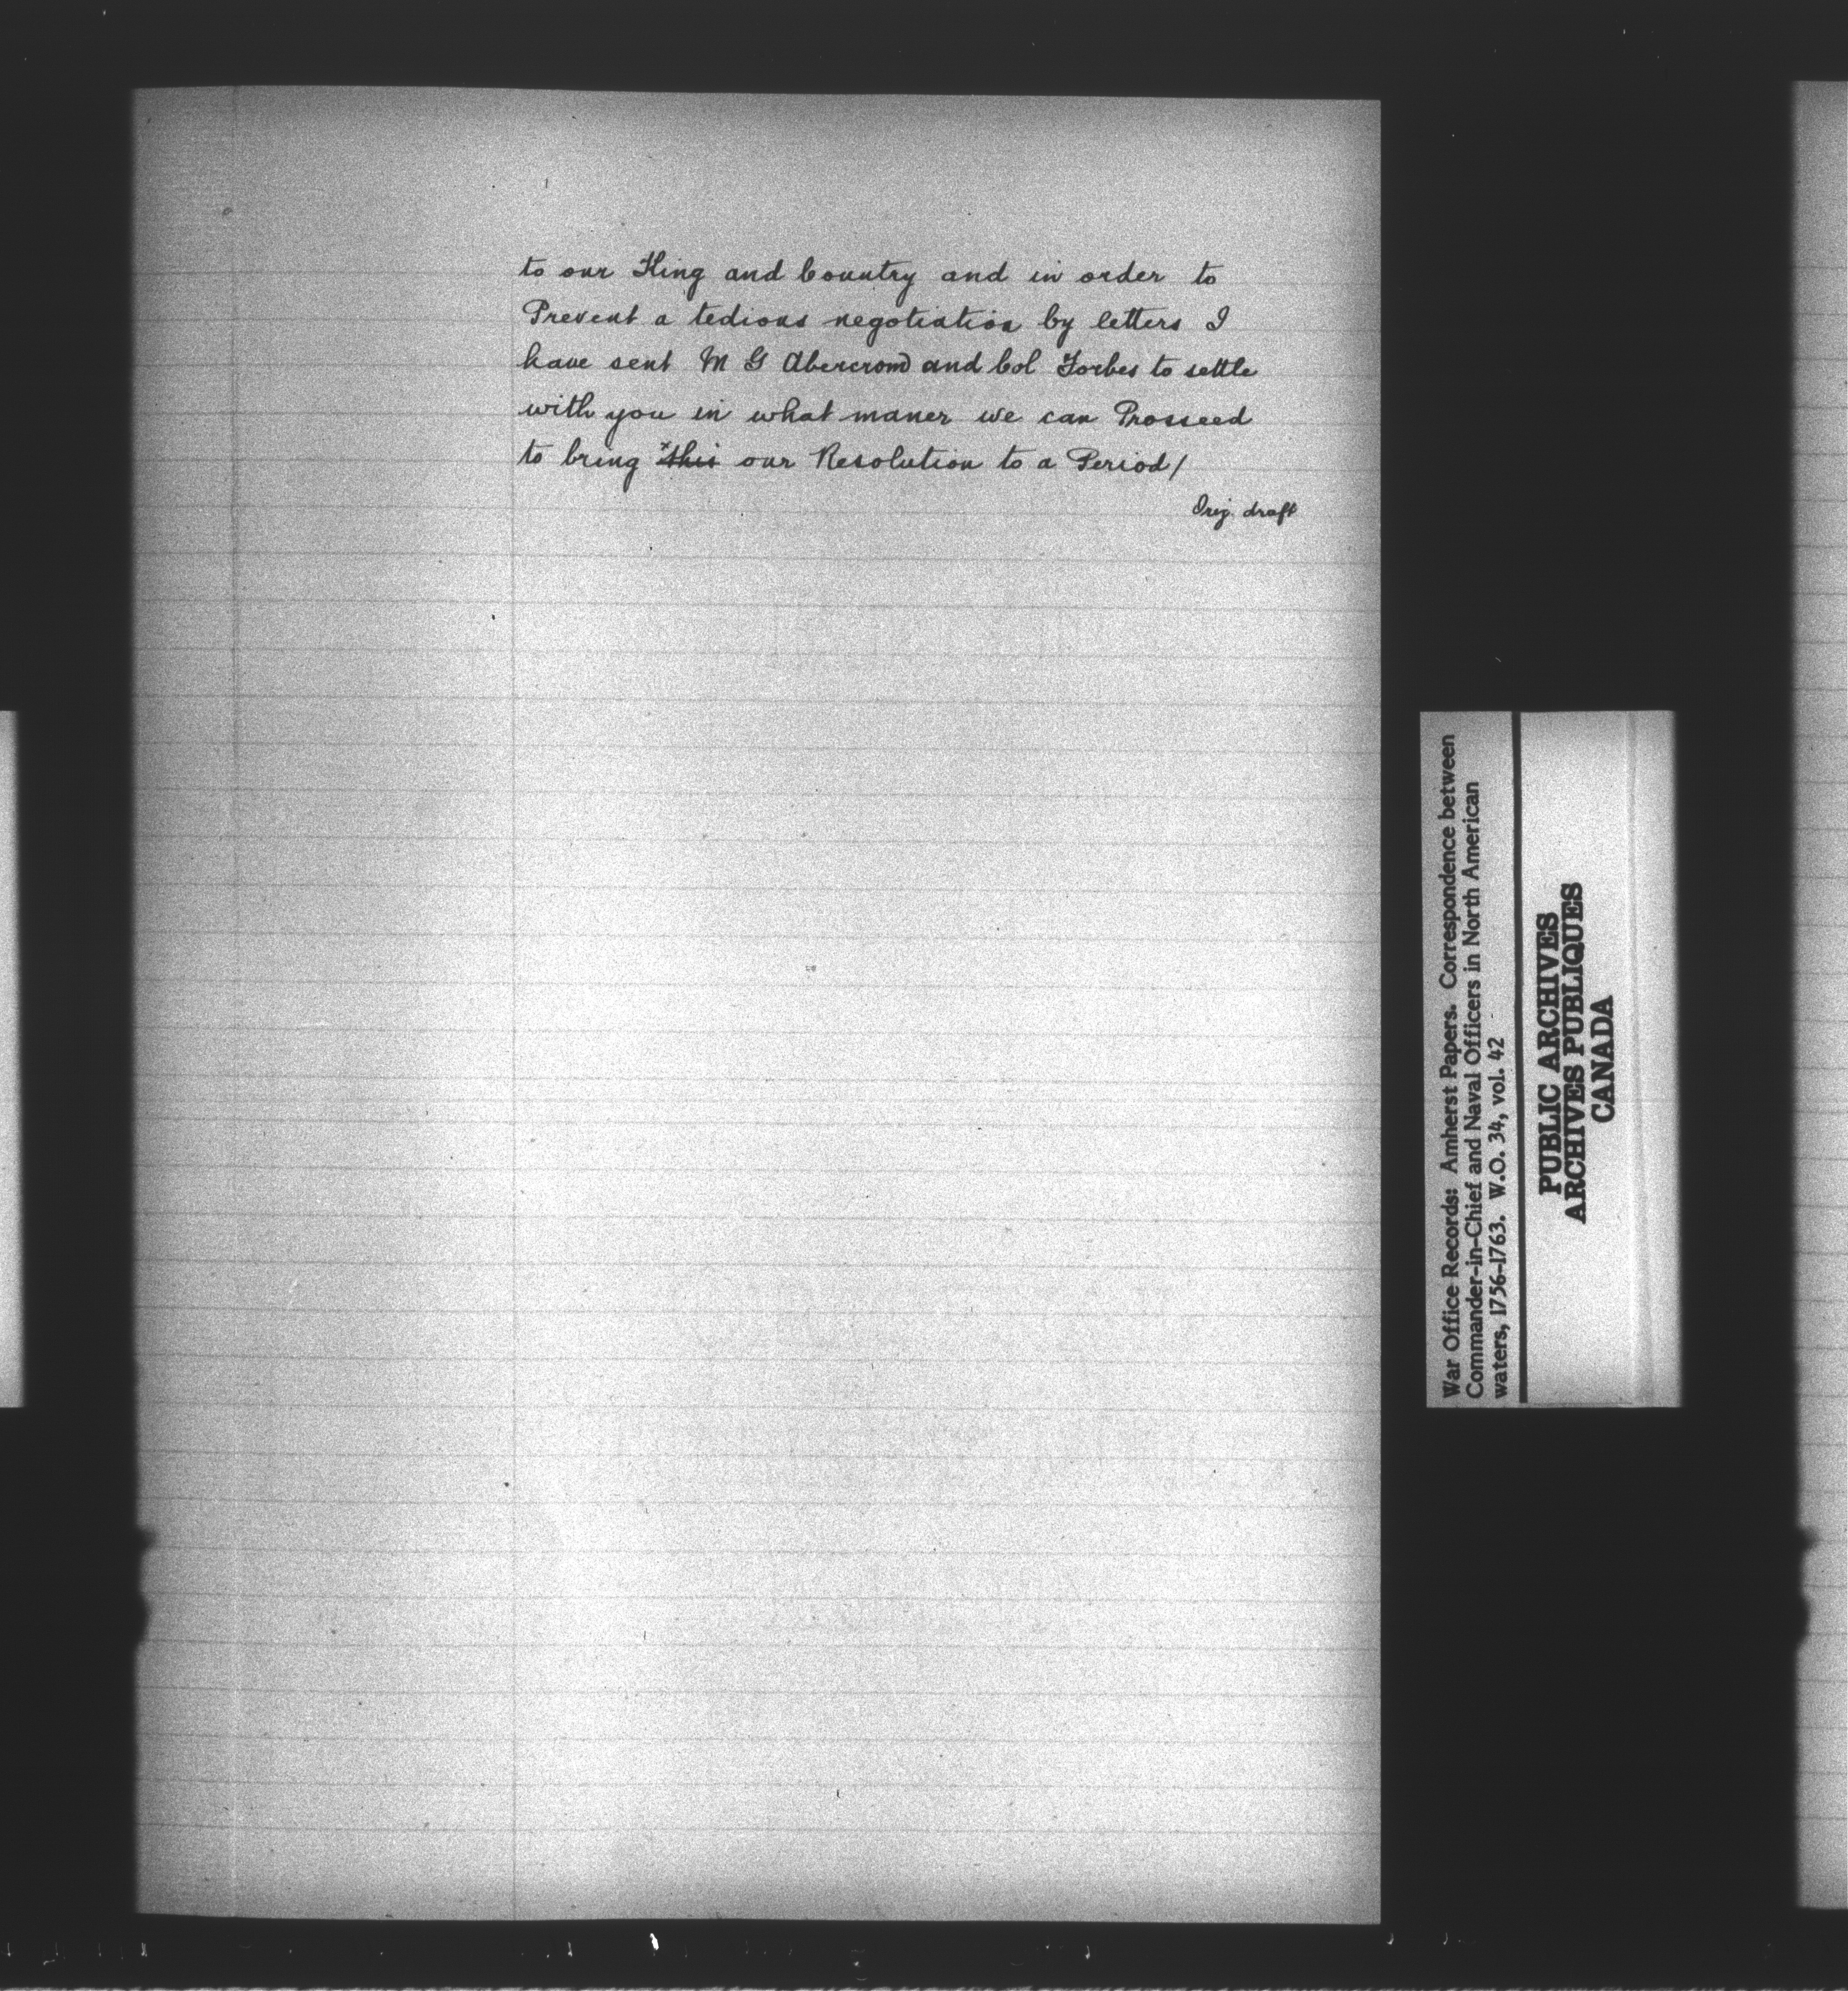 to our King and Country and in order to
Prevent a tedious negotiation by letters I
have sent M G Abercrom) and Col Forbes to settle
with you in what maner we can Prosseed
to bring x this our Resolution to a Period/
Orig. draft
War Office Records: Amherst Papers. Correspondence between
Commander-in-Chief and Naval Officers in North American
waters, 1756-1763. W.O. 34, vol. 42
PUBLIC ARCHIVES
ARCHIVES PUBLIQUES
CANADA